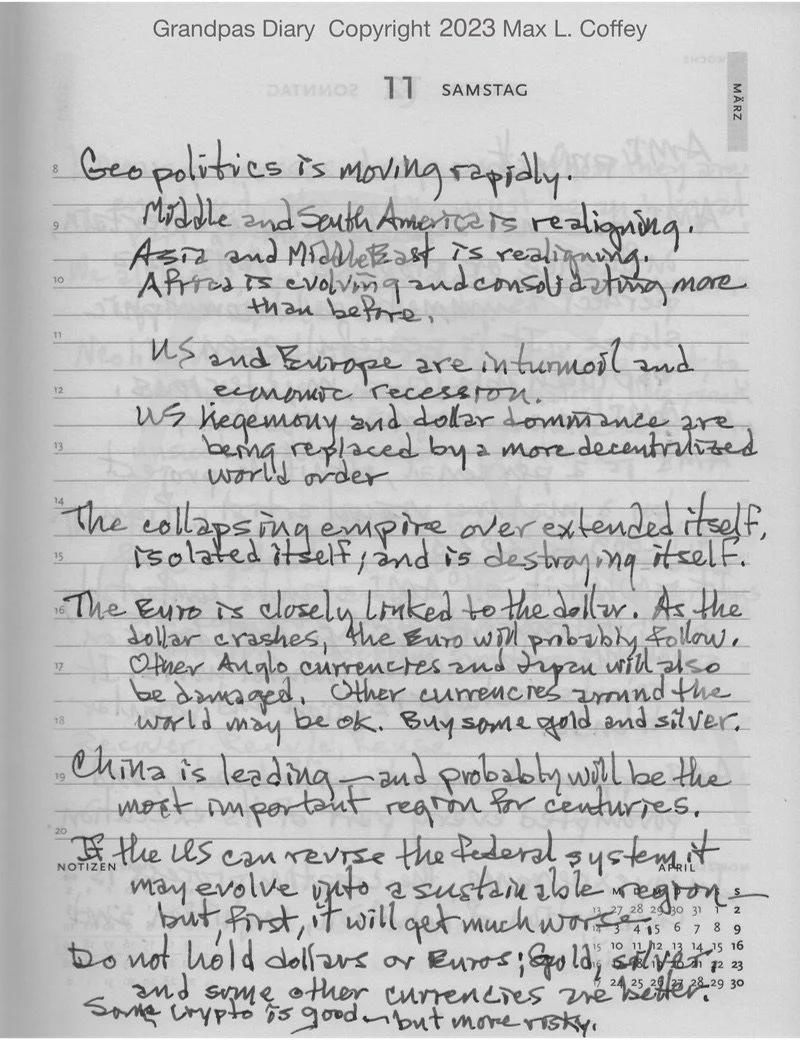 Grandpas Diary Copyright 2023 Max L. Coffey
11 SAMSTAG
MÄRZ
8 Geopolitics is moving rapidly.
9 Middle and South America is realigning.
Asia and Middle East is realigning.
10 Africa is evolving and consolidating more
than before.
11
US and Europe are in turmoil and
12 economic recession.
US hegemony and dollar dominance are
13 being replaced by a more decentralized
world order
14
The collapsing empire over extended itself,
15 isolated itself, and is destroying itself.
16 The Euro is closely linked to the dollar. As the
dollar crashes, the Euro will probably follow.
17 Other Anglo currencies and Japan will also
be damaged. Other currencies around the
18 world may be ok. Buy some gold and silver.
19 China is leading — and probably will be the
most important region for centuries.
20
If the US can revise the federal system it
NOTIZEN APRIL
may evolve into a sustainable region —
but, first, it will get much worse.
Do not hold dollars or Euros; Gold, silver,
and some other currencies are better.
Some Crypto is good — but more risky.
M S
13 27 28 29 30 31 1 2
14 3 4 5 6 7 8 9
15 10 11 12 13 14 15 16
22 23
17 24 25 26 27 28 29 30